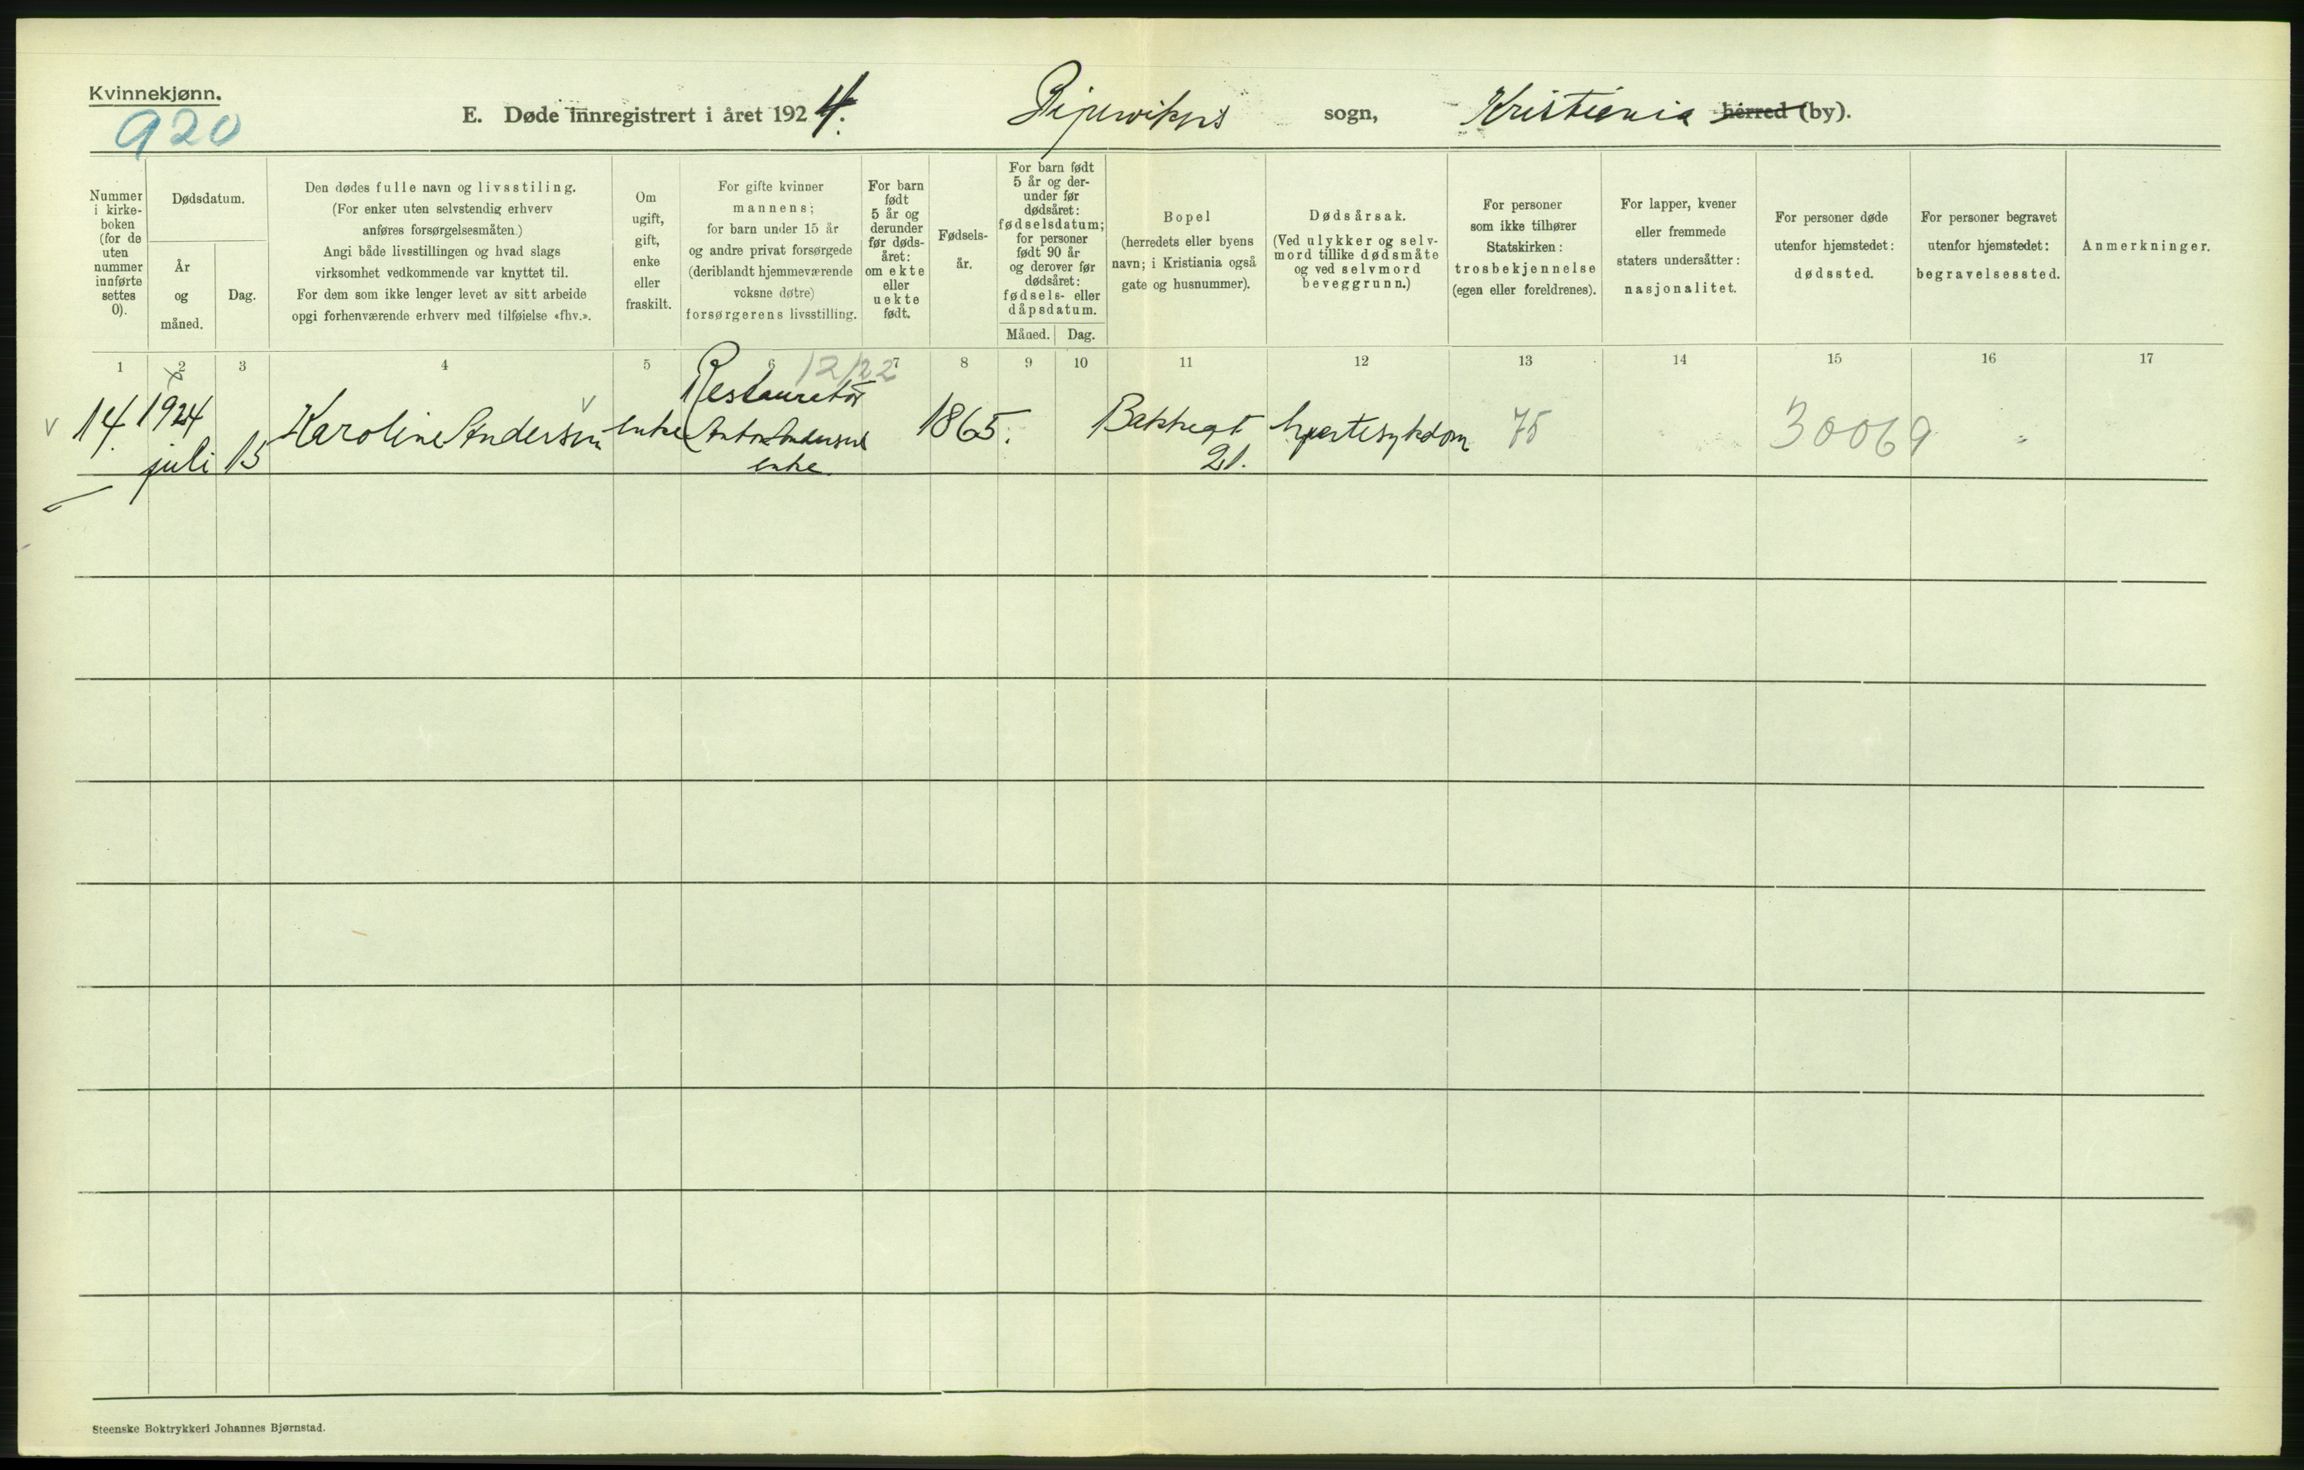 Kvinnekjønn.
920
E. Døde innregistrert i året 1924. sogn, Kristiania herred (by).
Nummer
i kirke-
boken
(for de
uten
nummer
innførte
settes
0).
Dødsdatum.
År
og
måned.
Dag.
Den dødes fulle navn og livsstiling.
(For enker uten selvstendig erhverv
anføres forsørgelsesmåten.)
Angi både livsstillingen og hvad slags
virksomhet vedkommende var knyttet til.
For dem som ikke lenger levet av sitt arbeide
opgi forhenværende erhverv med tilføielse «fhv.».
Om
ugift,
gift,
enke
eller
fraskilt.
For gifte kvinner
mannens;
for barn under 15 år
og andre privat forsørgede
(deriblandt hjemmeværende
voksne døtre)
forsørgerens livsstilling.
For barn
født
5 år og
derunder
før døds-
året:
om ekte
eller
uekte
født.
Fødsels-
år.
For barn født
5 år og der-
under før
dødsåret:
fødselsdatum;
for personer
født 90 år
og derover før
dødsåret:
fødsels- eller
dåpsdatum.
Måned. Dag.
Bopel
(herredets eller byens
navn; i Kristiania også
gate og husnummer).
Dødsårsak.
(Ved ulykker og selv-
mord tillike dødsmåte
og ved selvmord
beveggrunn.)
For personer
som ikke tilhører
Statskirken:
trosbekjennelse
(egen eller foreldrenes).
For lapper, kvener
eller fremmede
staters undersåtter:
nasjonalitet.
For personer døde
utenfor hjemstedet:
dødssted.
For personer begravet
utenfor hjemstedet:
begravelsessted.
Anmerkninger.
1 2 3 4 5 6 7 8 9 10 11 12 13 14 15 16 17
12/22
Restauratør
14. 1924 Karoline Andersen enke Anton Andersens 1865. Bakkegt hjertesykdom 75 30069
juli 15 enke 21.
Steenske Boktrykkeri Johannes Bjørnstad.